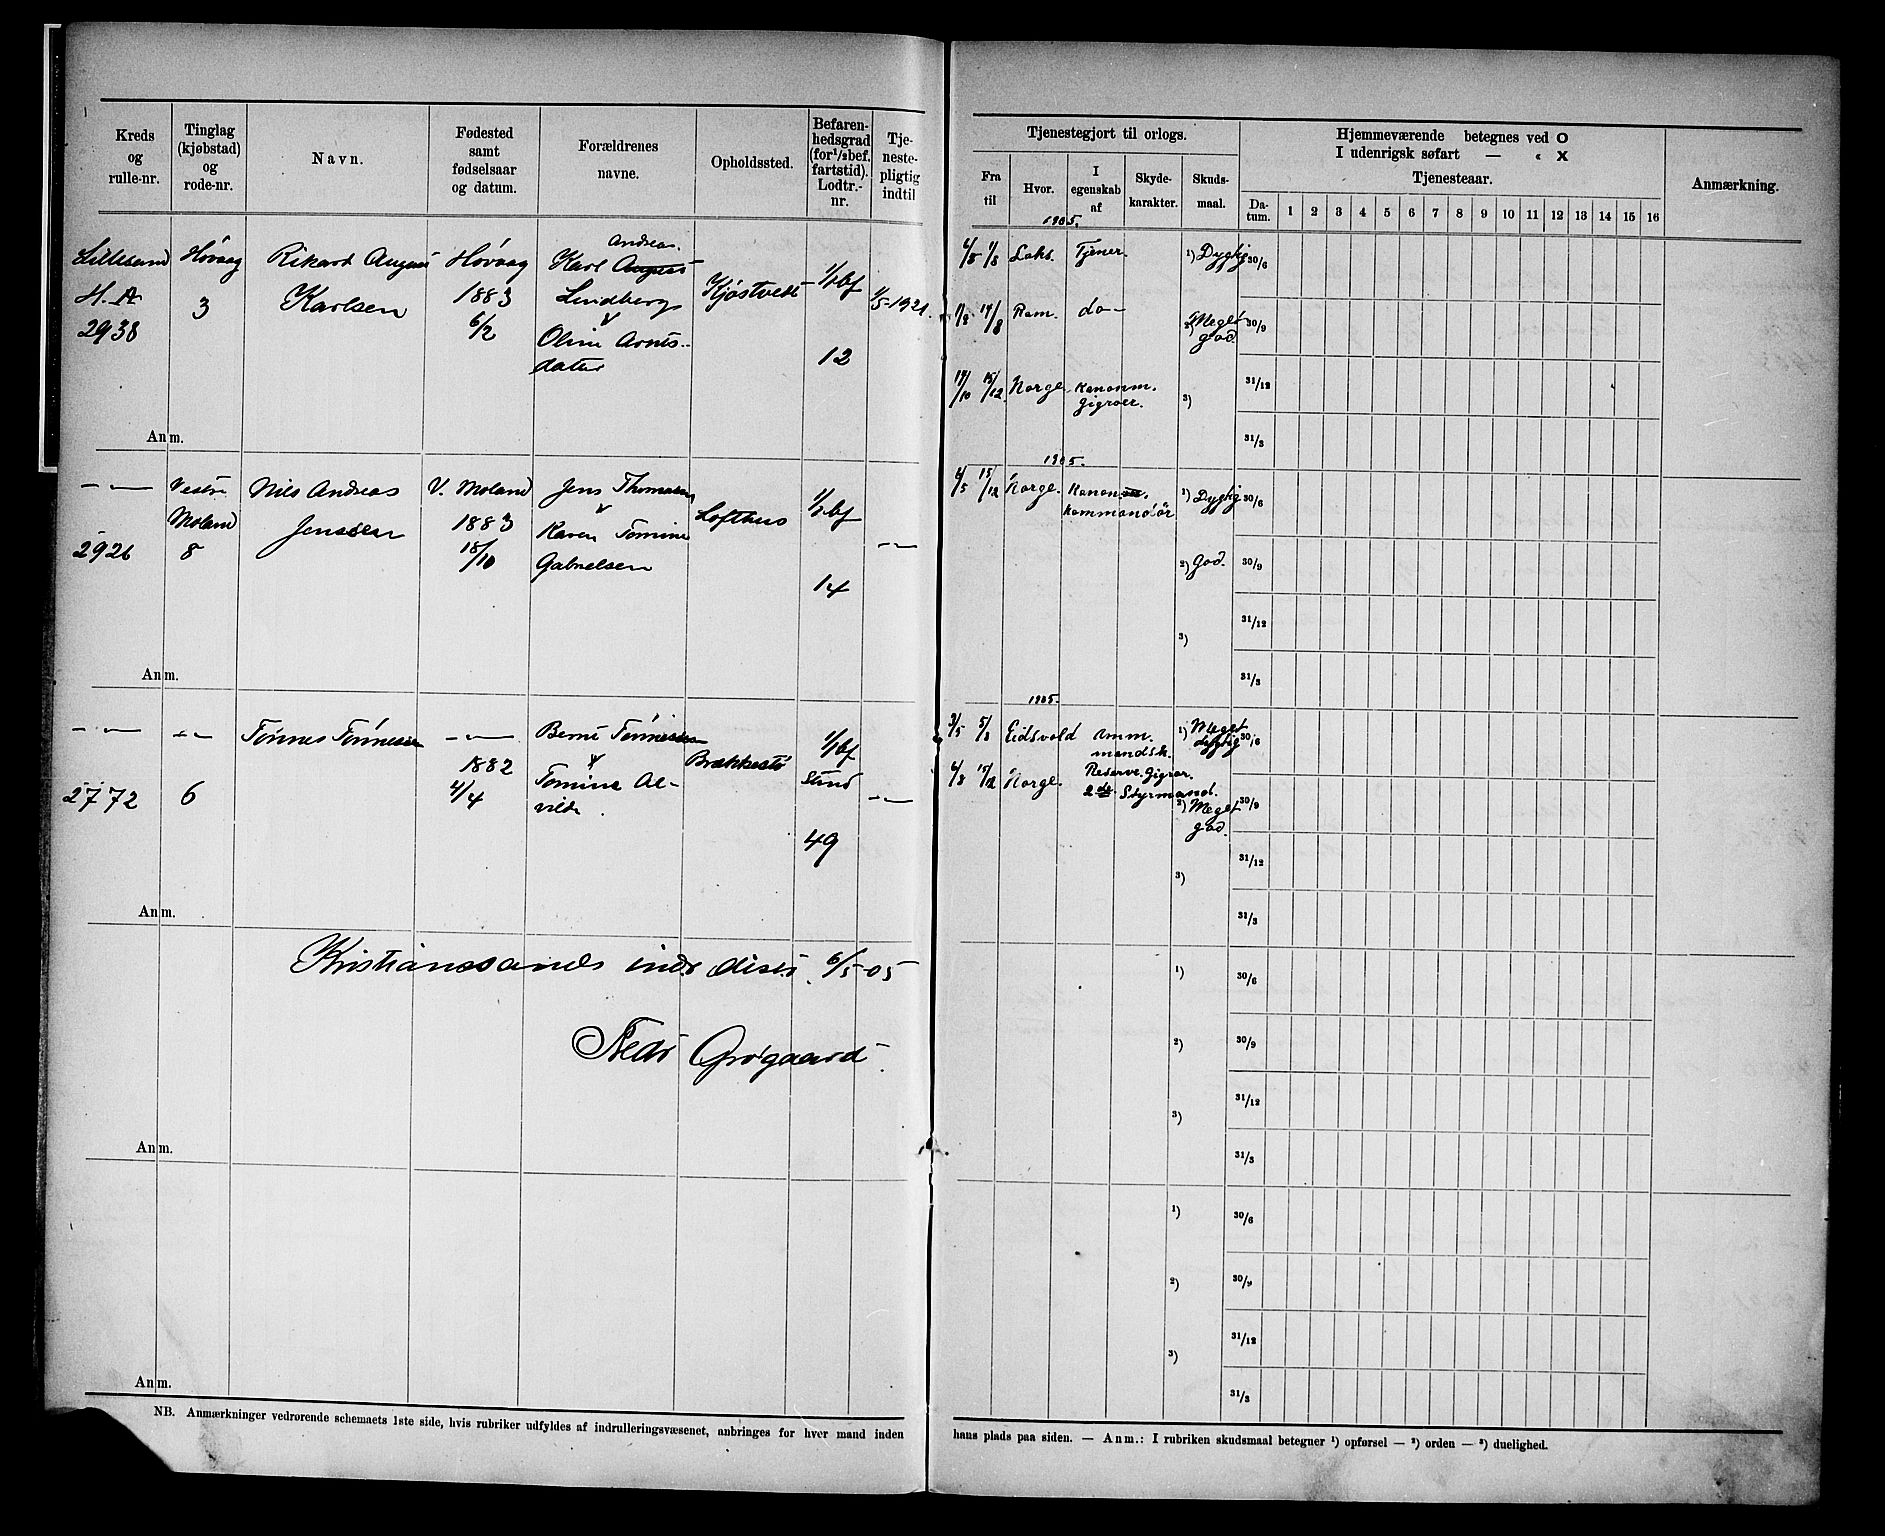 Kreds og rulle-nr.
Tinglag (kjøbstad) og rode-nr.
Navn.
Fødested samt fødselsaar og datum.
Forældrenes navne.
Opholdssted.
Befaren-hedsgrad (for 1/1 bef. fartstid). Lodtr.-nr.
Tje-neste-pligtig indtil
Tjenestegjort til orlogs.
Fra til
Hvor.
I egenskab af
Skyde-karakter.
Skuds-maal.
Hjemmeværende betegnes ved O
I udenrigsk søfart — « X
Tjenesteaar.
Da-tum. 1 2 3 4 5 6 7 8 9 10 11 12 13 14 15 16
Anmærkning.
Lillesand
H.A
2938
Høvaag
3
Rikard August
Karlsen
Høvaag
1883
6/2
Andreas.
Karl August
Lindberg
v
Oline Arnts-
datter
Kjøstvedt
1/1 bf
12
1/5-1921.
1905.
4/5 1/8 Laks. Tjener. 1) Dygtig 30/6
1/8 14/8 Ram. do- 2) Meget god 30/9
14/10 15/12 Norge. Kanonm. gigroer. 3) 31/12
31/3
Anm.
— „ —
2926
Vestre
Moland
8
Nils Andreas
Jensen
V. Moland
1883
18/10
Jens Thomassen
v
Karen Tomine
Gabrielsen
Lofthus
1/1 bf
14
— „ —
1905.
4/5 15/12 Norge. Kanon
kommandör 1) Dygtig 30/6
2) God. 30/9
3) 31/12
31/3
Anm.
— „ —
2772
— „ —
6
Tønnes Tønnesen
— „ —
1882
4/4
Bernt Tønnesen
v
Tomine Al-
vilde.
Brækkestø
1/1 bf
Stund
49
— „ —
1905.
3/5 5/8 Eidsvold Amm.
mandsk. 1) Meget dygtig 30/6
4/8 15/12 Norge. Reserve. Gigroer.
2den Styrmand.
2) Meget god. 30/9
3) 31/12
31/3
Anm.
Kristianssands indr distr. 6/5-05
Fredr Grøgaard.
1) 30/6
2) 30/9
3) 31/12
31/3
Anm.
1) 30/6
2) 30/9
3) 31/12
31/3
Anm.
NB. Anmærkninger vedrørende schemaets 1ste side, hvis rubriker udfyldes af indrulleringsvæsenet, anbringes for hver mand inden
hans plads paa siden. — Anm.: I rubriken skudsmaal betegner 1) opførsel — 2) orden — 3) duelighed.